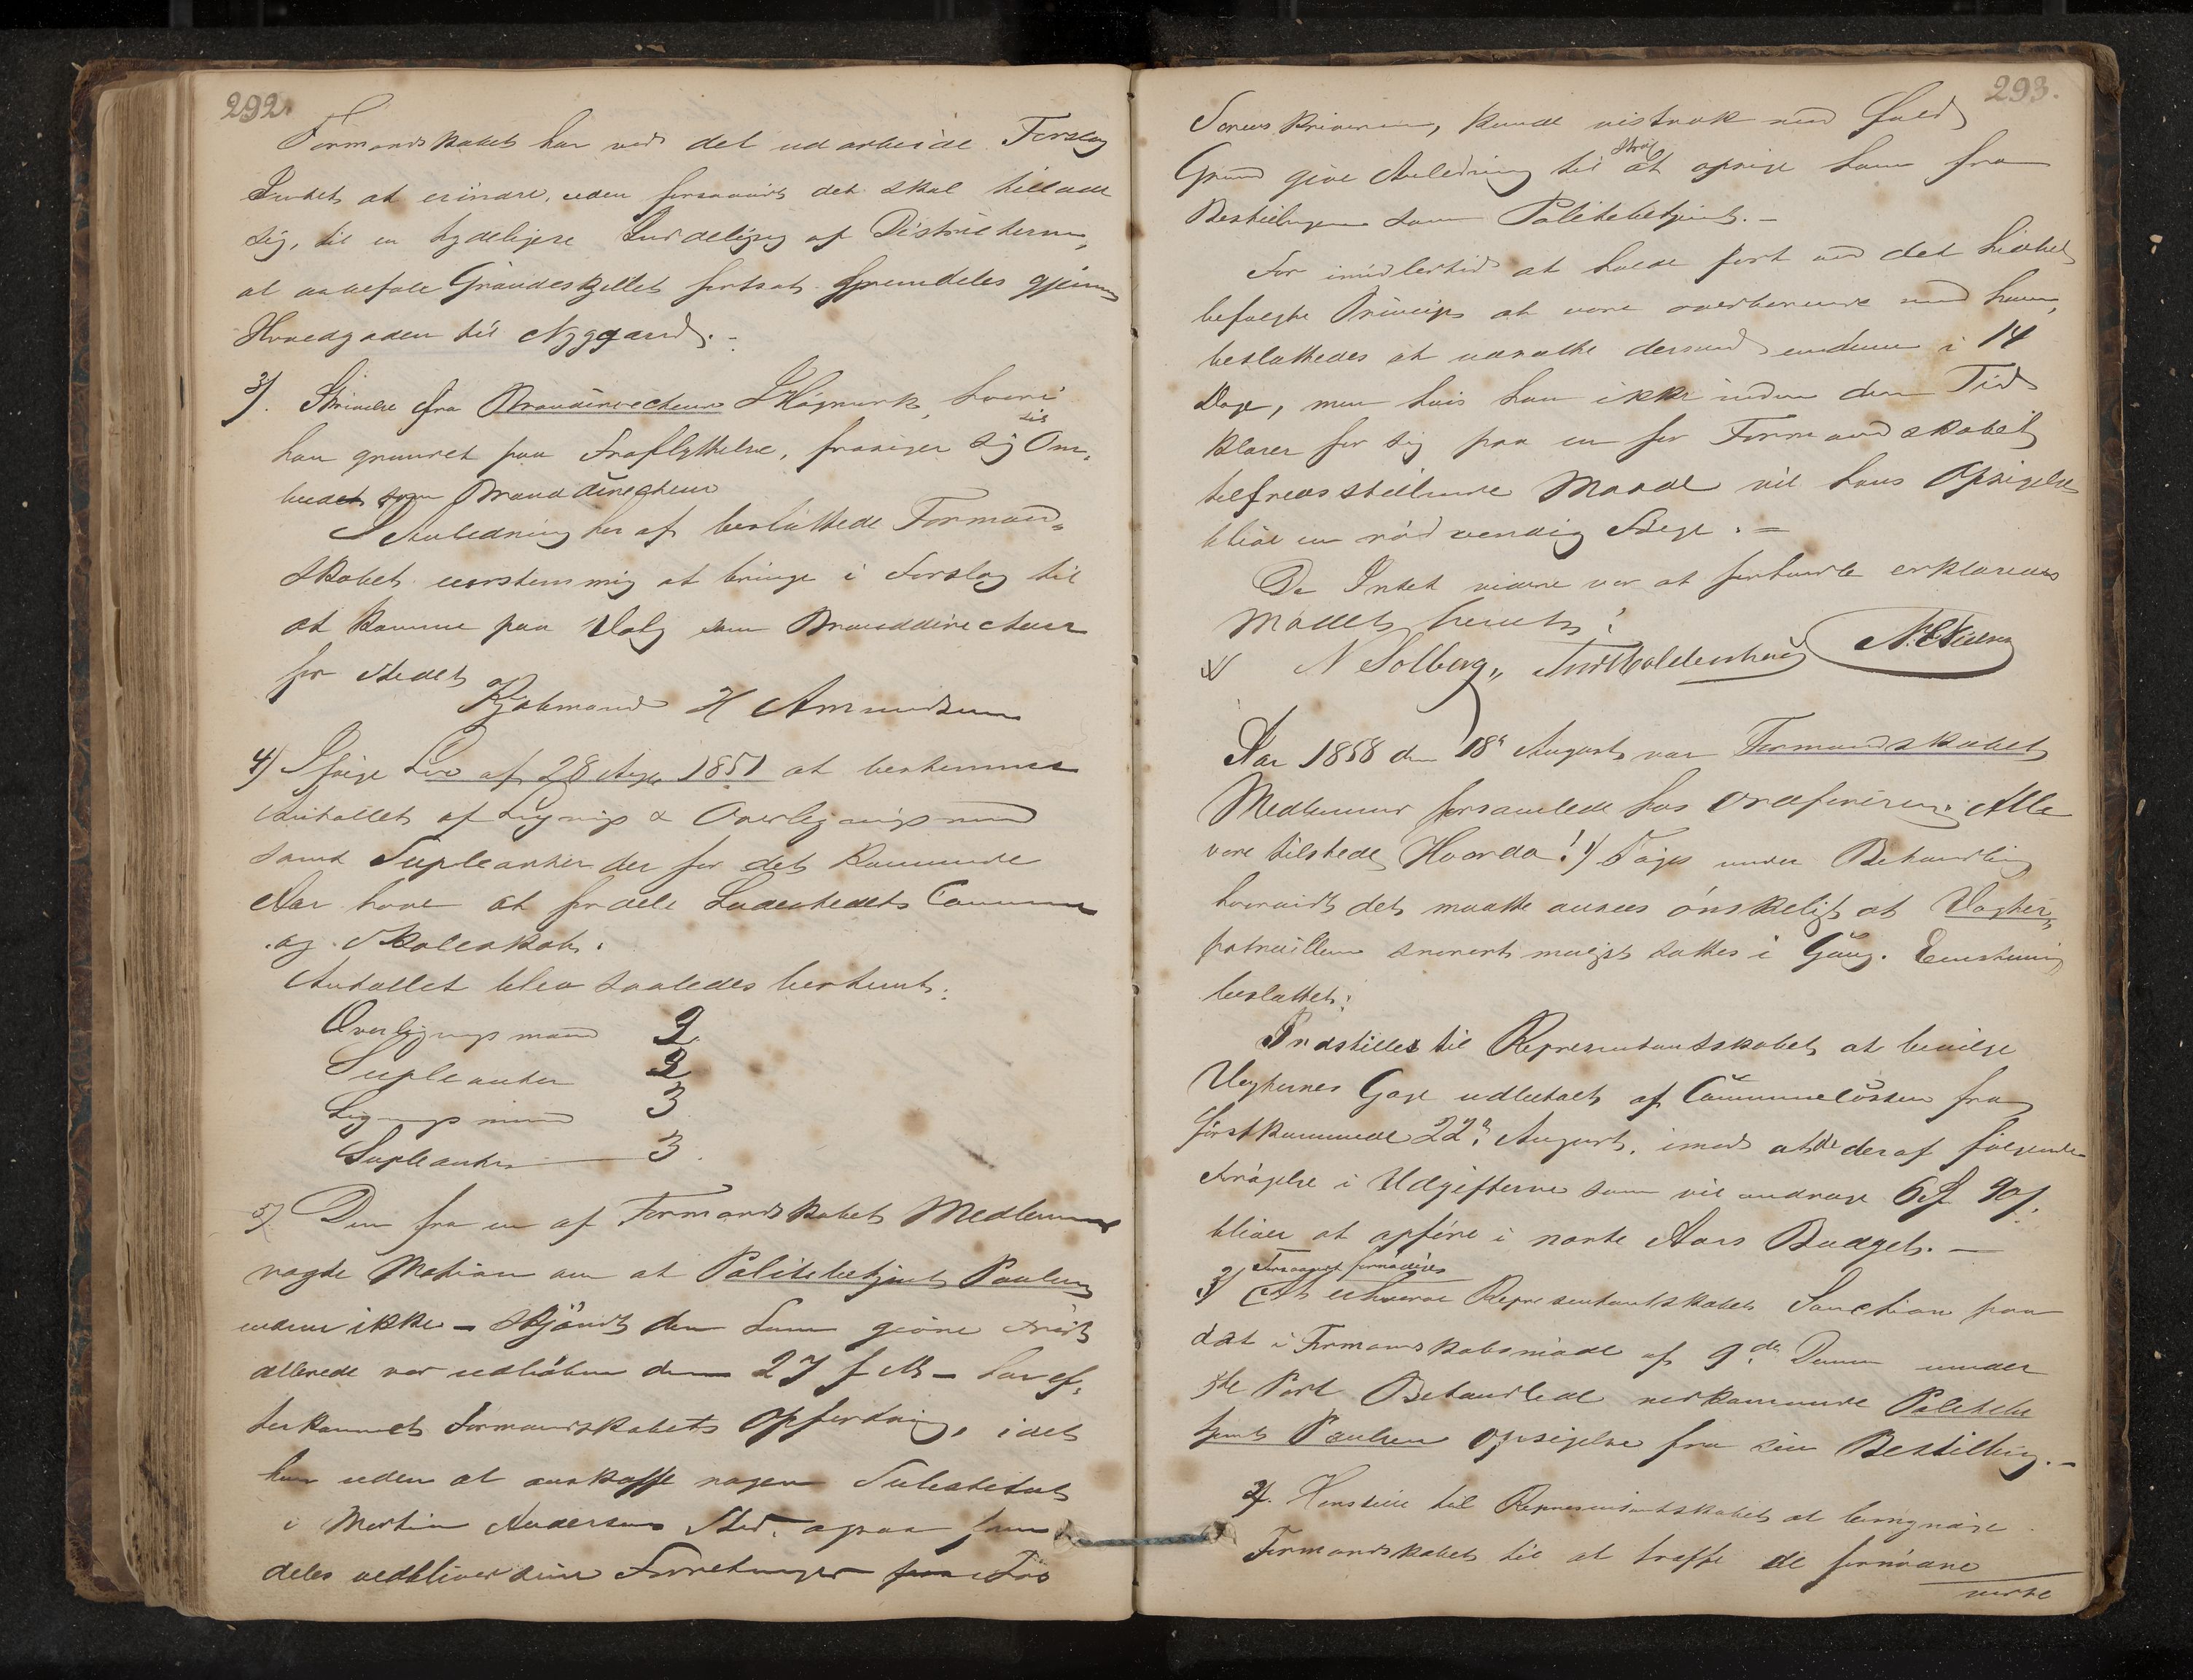 292.
Formandskabet har ved det udarbeide Forslag
Intet at erindre, uden forsaavidt det skal tillade
sig, til en tydeligere Inddeling af Districterne,
at anbefale Grændeskjellet fortsat fremdeles gjennem
Hovedgaden til Nygaard.-
3). Skrivelse fra Branddirecteur Høgmark, hvori
han grundet paa Fraflyttelse, frasiger sig sit Om-
bud som Branddirecteur
I Anledning heraf besluttede Formand-
skabet eenstemmig at bringe i Forslag til
at komme paa Valg som Branddirecteur
for Stedet
Kjøbmand H Amundsen
4) Ifølge Lov af 28 Aug 1851 at bestemme
Antallet af Lignings & Overligningsmænd
samt Supleanter der for det kommende
Aar have at fordele Ladestedets Commune
og Skoleskat.
Antallet blev saaledes bestemt:
Overligningsmænd 2.
Supleanter 2
Ligningsmænd 3
Supleanter 3.
5) Den fra en af Formandskabets Medlemmer
vagte Motion om at Politibetjent Paulsen
endnu ikke - skjøndt den ham givne Frist
allerede var udløben den 27 f M - har ef-
terkommet Formandskabets Opfordring, idet
han uden at anskaffe nogen Substitut
i Martin Andersens Sted, ogsaa frem
deles vedbliver sine Forretninger hos
293.
Sorenskriveren, kunde vistnok med fuld
Grund give Anledning til strax at opsige ham fra
Bestillingen som Politibetjent.-
For imidlertid at holde fort ved det hidtil
befulgte Princip at være overbærende med ham,
besluttedes at udsætte dermed endnu i 14
Dage, men hvis han ikke inden den Tid
klarer for sig paa en for Formandskabet
tilfredsstillende Maade vil hans Opsigelse
blive en nødvendig Følge.-
Da Intet videre var at forhandle erklæredes
Mødet hævet.
N Solberg
Aar 1858 den 18de August var Formandskabets
Medlemmer forsamlede hos Ordføreren. Alle
vare tilstede, Hvorda: 1) Toges under Behandling
hvorvidt det maatte ansees ønskeligt at Vægter-
patrouillen snarest muligt sættes i Gang. Eenstemmig
besluttet:
Indstilles til Representantskabet at bevilge
Vægternes Gage udbetalt af Communecassen fra
førstkommende 22de August, imod at de deraf følgende
Forøgelse i Udgifterne som vil andrage
bliver at opføre i næste Aars Budget.-
Forsaavidt fornødiges
2) At erhverve Representantskabets Sanction paa
det i Formandskabsmøde af 9de Dennes under
5te Post Behandlede vedkommende Politibe
tjent Paulsens Opsigelse fra sin Bestilling.-
3). Henstille til Representantskabet at bemyndige
Formandskabet til at træffe de fornødne